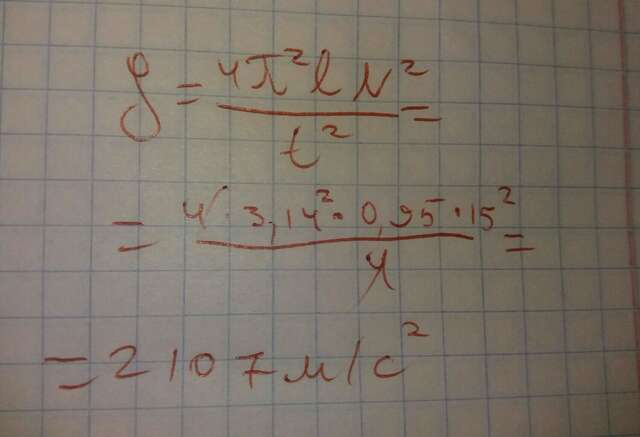 g = 4π²lN² / t² =
= 4 · 3,14² · 0,95 · 15² / 4 =
= 2107 м/с²